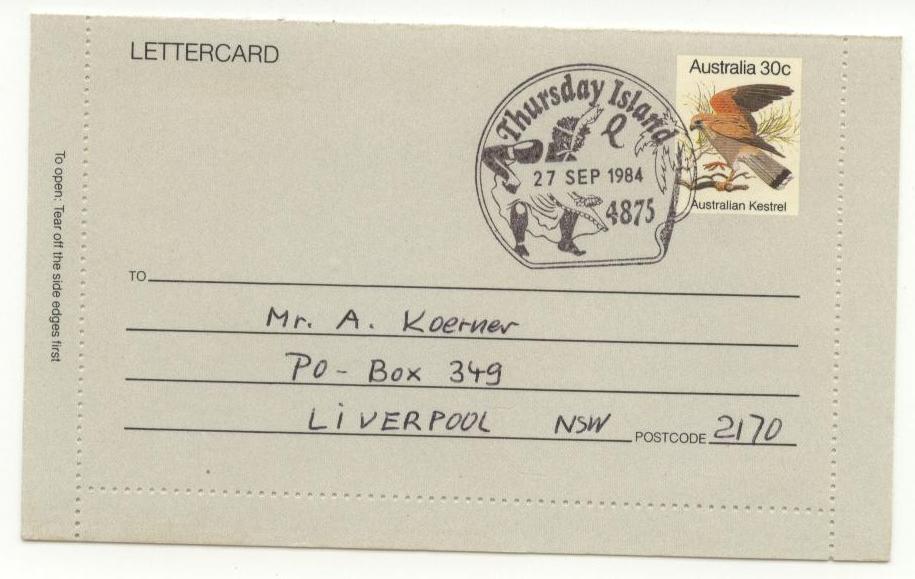 LETTERCARD
Australia 30c
Thursday Island
27 SEP 1984
4875
Australian Kestrel
To open: Tear off the side edges first
TO
Mr. A. Koerner
PO - Box 349
LiVERPOOL NSW POSTCODE 2170